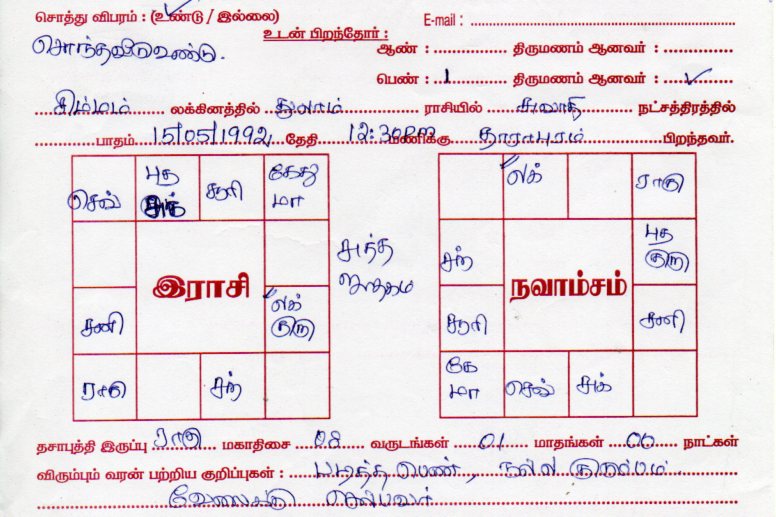 சொத்து விபரம் : (உண்டு / இல்லை) E-mail :
சொந்தவீடு உண்டு.
உடன் பிறந்தோர் :
ஆண் : திருமணம் ஆனவர் :
பெண் : 1 திருமணம் ஆனவர் : ✓
சிம்மம் லக்கினத்தில் துலாம் ராசியில் சுவாதி நட்சத்திரத்தில்
பாதம் 15/05/1992 தேதி 12:30PM மணிக்கு தாராபுரம் பிறந்தவர்.
செவ் புத சுக் சூரி கேது மா
இராசி
சனி ல குரு
ராகு சந்
சுத்த ஜாதகம்
ல ராகு
சந் புத குரு
நவாம்சம்
சூரி சனி
கே மா செவ் சுக்
தசாபுத்தி இருப்பு ராகு மகாதிசை 08 வருடங்கள் 01 மாதங்கள் 06 நாட்கள்
விரும்பும் வரன் பற்றிய குறிப்புகள் : படித்த பெண், நல்ல குடும்பம்.